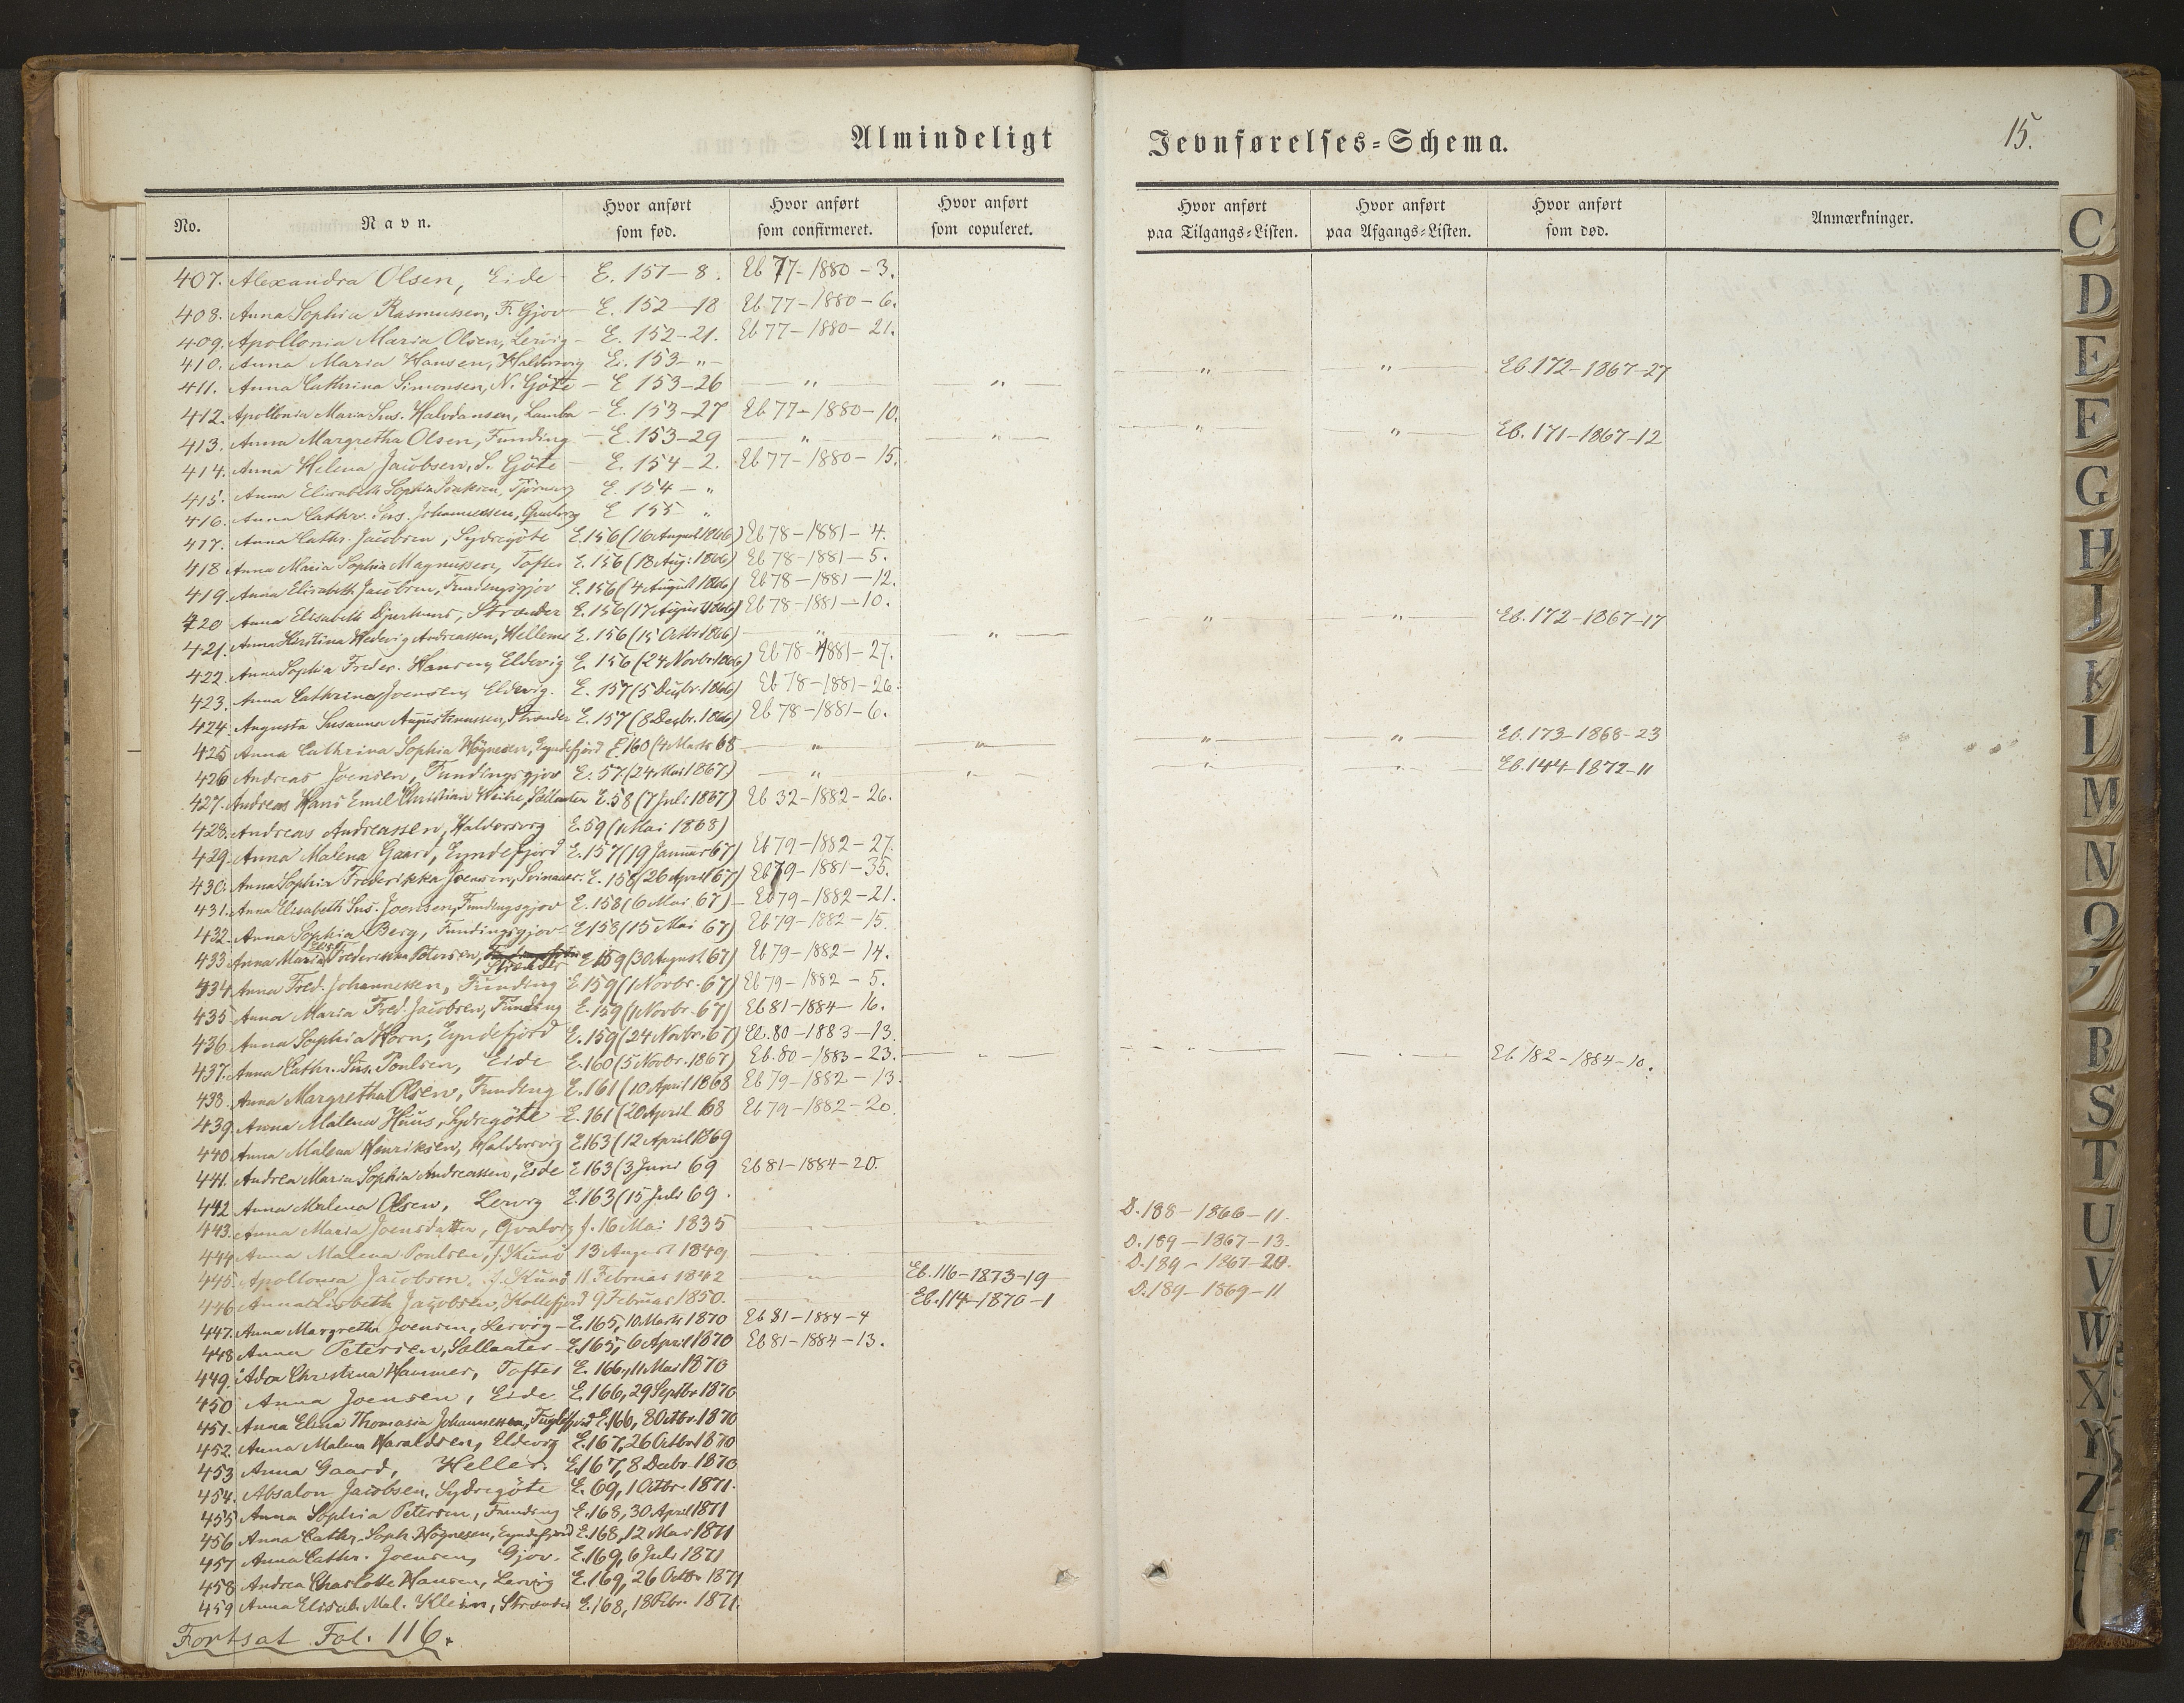 Almindeligt Jevnførelses=Schema.
15.
No. Navn. Hvor anført som fød. Hvor anført som confirmeret. Hvor anført som copuleret. Hvor anført paa Tilgangs=Listen. Hvor anført paa Afgangs=Listen. Hvor anført som død. Anmærkninger.
407. Alexandra Olsen, Eide - E. 151-8. Eb 77-1880-3.
408. Anna Sophia Rasmussen, F. Gjov - E. 152-18 Eb 77-1880-6.
409. Apollonia Maria Olsen, Lervig - E. 152-21. Eb 77-1880-21.
410. Anna Maria Hansen, Haldorsvig E. 153-"-
411. Anna Cathrina Simonsen, N. Göte - E 153-26 — " — " — " — " — Eb. 172-1867-27
412. Apollonia Maria Sus. Halvdansen, Lamba - E. 153-27 Eb 77-1880-10.
413. Anna Margretha Olsen, Funding - E. 153-29 — " — " — " — " — Eb. 171-1867-12
414. Anna Helena Jacobsen, S. Göte - E. 154-2. Eb 77-1880-15.
415. Anna Elisabeth Sophia Joensen, E. 154-"
416. Anna Cathr. Sus. Johannessen, E 155 "
417. Anna Cathr. Jacobsen, Sydregöte E. 156 (16 August 1866) Eb 78-1881-4.
418. Anna Maria Sophia Magnussen, Toftes E. 156 (18 Aug: 1866) Eb 78-1881-5.
419. Anna Elisabeth Jacobsen, Fundingsgjov E. 156 (4 August 1866) Eb 78-1881-12.
420 Anna Elisabeth Djurhuus, Strænder E. 156 (17 August 1866) Eb 78-1881-10.
421. Anna Kirstina Hedevig Andreassen, Hellerne E. 156 (15 Octbr 1866) — " — " — " — " — Eb. 172-1867-17
422. Anna Sophia Freder. Hansen, Eldevig E. 156 (24 Novbr 1866) Eb 78-1881-27.
423. Anna Cathrina Joensen, Eldevig. E. 157 (5 Decbr. 1866) Eb 78-1881-26.
424. Augusta Susanna Augustinussen, Strænder E. 157 (8 Decbr. 1866) Eb 78-1881-6.
425 Anna Cathrina Sophia Högnesen, Eyndefjord E 160 (4 Marts 68 — " — " — " — " — Eb. 173-1868-23
426 Andreas Joensen, Fundingsgjov E. 57. (24 Mai 1867) — " — " — " — " — Eb. 144-1872-11
427. Andreas Hans Emil Christian Weihe, Sellatrer E. 58 (7 Juli 1867) Eb 32-1882-26.
428. Andreas Andreassen, Haldorsvig E. 59 (1 Mai 1868)
429. Anna Malena Gaard, Eyndefjord E. 157 (19 Januar 67) Eb 79-1882-27.
430. Anna Sophia Frederikka Joensen, Svinaaer. E. 158 (26 April 67) Eb 79-1881-35.
431. Anna Elisabeth Sus. Joensen, Fundingsgjov E. 158 (6 Mai 67) - Eb 79-1882-21.
432. Anna Sophia Berg, Fundingsgjov - E 158 (15 Mai 67) Eb 79-1882-15.
433 Anna Maria Frederikka Petersen, Strænder E 159 (30 August 67) Eb 79-1882-14.
434 Anna Fred. Johannessen, Funding E. 159 (1 Novbr. 67) Eb 79-1882-5.
435 Anna Maria Fred. Jacobsen, Funding E. 159 (1 Novbr. 67) Eb 81-1884-16.
436 Anna Sophia Horn, Eyndefjord E. 159 (24 Novbr. 67) Eb. 80-1883-13.
437. Anna Cathr. Sus. Poulsen, Eide E. 160 (5 Novbr. 1867) Eb. 80-1883-23. — " — " — " — Eb 182-1884-10.
438. Anna Margretha Olsen, Funding E. 161 (10 April 1868 Eb 79-1882-13.
439 Anna Malena Huus, Sydregöte E. 161 (20 April 68 Eb 79-1882-20.
440 Anna Malena Henriksen, Haldorsvig E. 163 (12 April 1869
441. Andrea Maria Sophia Andreassen, Eide E 163 (3 Juni 69 Eb 81-1884-20.
442 Anna Malena Olsen, Lervig E. 163 (15 Juli 69.
443. Anna Maria Joensdatter, Qvalvig f. 16 Mai 1835 — " — " D. 188-1866-11.
444 Anna Malena Poulsen, f. Kunö 13 August 1849 — " — D. 189-1867-13.
445 Apollonia Jacobsen, f. Kunö 11 Februar 1842 — " — Eb. 116-1873-19 D. 189-1867-20.
446 Anna Lisbeth Jacobsen, Kollefjord 9 Februar 1850. — Eb. 114-1870-1 D. 189-1869-11
447. Anna Margretha Joensen, Lervig - E. 165, 10 Marts 1870 Eb 81-1884-4
448 Anna Petersen, Sellatrer E. 165, 6 April 1870 Eb 81-1884-13.
449. Ada Christina Hammer, Toftes E. 166, 11 Mai 1870
450 Anna Joensen, Eide E. 166, 29 Septbr 1870
451. Anna Elina Thomasia Johannessen, Fuglefjord E. 166, 8 Octbr. 1870
452. Anna Malena Haraldsen, Eldevig E. 167, 26 Octbr 1870
453 Anna Gaard, Heller. E. 167, 8 Decbr. 1870
454. Absalon Jacobsen, Sydregöte E. 69, 1 Octbr. 1871.
455 Anna Sophia Petersen, Funding E. 168, 30 April 1871
456 Anna Cathr. Soph. Högnesen, Eyndefjord E. 168, 12 Mai 1871
457 Anna Cathr. Joensen, Gjov. E. 169, 6 Juli 1871
458 Andrea Charlotte Hansen, Lervig E. 169, 26 Octbr 1871
459 Anna Elisab. Mal. Klein, Strænder E. 168, 18 Febr. 1871.
Fortsat Fol. 116.
C
D
E
F
G
H
J
K
L
M
N
O
B
S
T
U
V
W
X
Y
Z